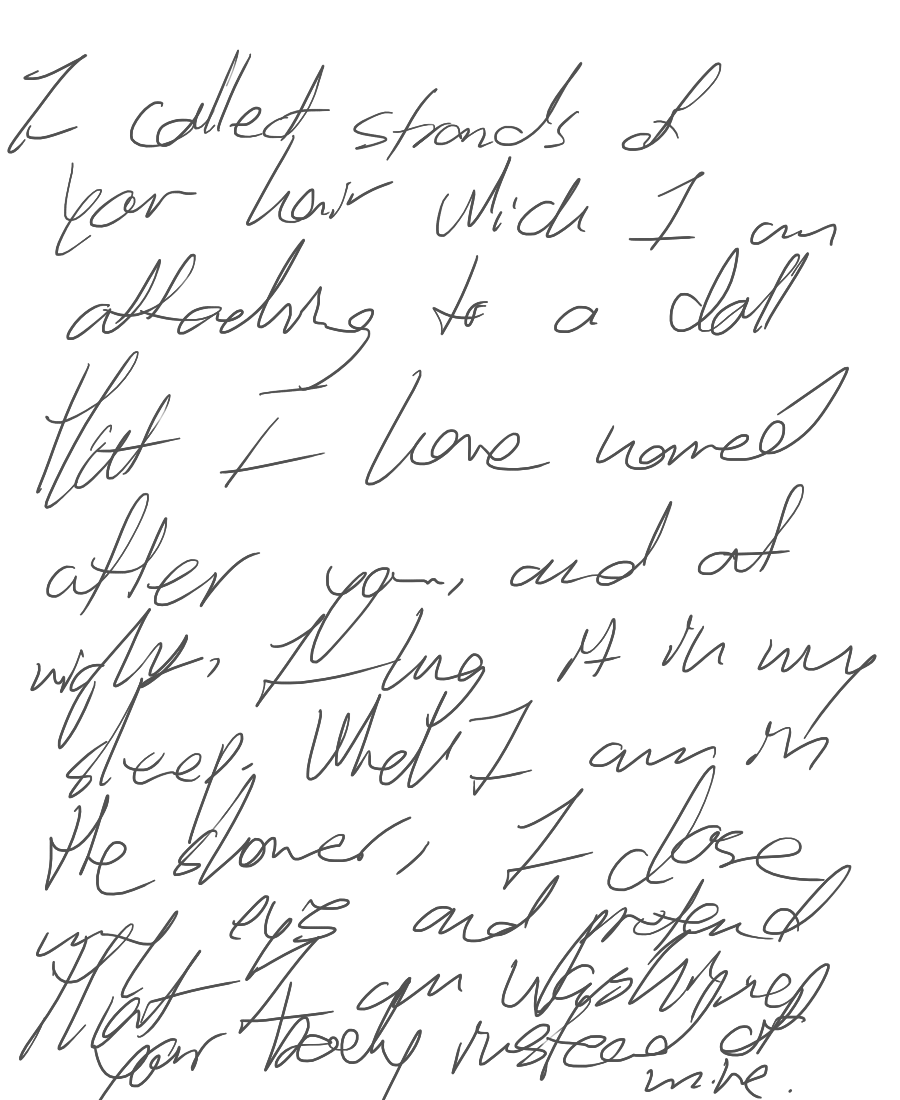 I collect strands of
your hair which I am
attaching to a doll
that I have named
after you, and at
night, I hug it in my
sleep. When I am in
the shower, I close
my eyes and pretend
that I am washing
your body instead of
mine.